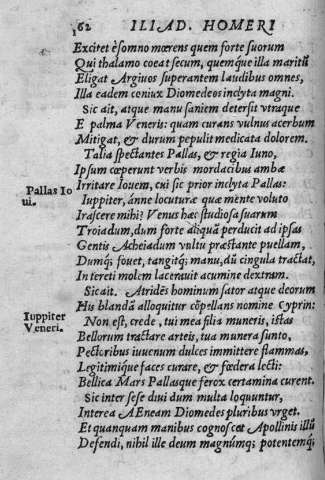 162 ILIAD. HOMERI
Excitet è somno mœrens quem forte suorum
Qui thalamo coeat secum, quemq́ue illa maritũ
Eligat Argiuos superantem laudibus omnes,
Illa eadem coniux Diomedeos inclyta magni.
Sic ait, atque manu saniem detersit vtraque
E palma Veneris: quam curans vulnus acerbum
Mitigat, & durum pepulit medicata dolorem.
Talia spectantes Pallas, & regia Iuno,
Ipsum cœperunt verbis mordacibus ambæ
Irritare Iouem, cui sic prior inclyta Pallas:
Pallas Io
ui.
Iuppiter, ánne locuturæ quæ mente voluto
Irascêre mihi? Venus hæc studiosa suarum
Troiadum, dum forte aliquã perducit ad ipsas
Gentis Acheiadum vultu præstante puellam,
Dumq́; fouet, tangitq́; manu, dũ cingula tractat,
In tereti molem lacerauit acumine dextram.
Sic ait. Atrides hominum sator atque deorum
His blandã alloquitur cõpellans nomine Cyprin:
Iuppiter
Veneri.
Non est, crede, tui mea filia muneris, istas
Bellorum tractare arteis, tua munera sunto,
Pectoribus iuuenum dulces immittere flammas,
Legitimiq́ue faces curare, & fœdera lecti:
Bellica Mars Pallasque ferox certamina curent.
Sic inter sese diui dum multa loquuntur,
Interea AEneam Diomedes pluribus vrget.
Et quanquam manibus cognoscat Apollinis illũ
Defendi, nihil ille deum magnúmq; potentemq́;